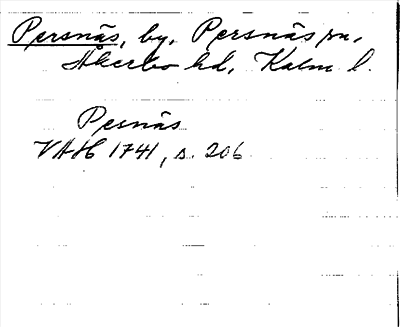 Persnäs, by, Persnäs sn,
Åkerbo hd, Kalm l.
Pesnäs
VAH 1741, s. 206